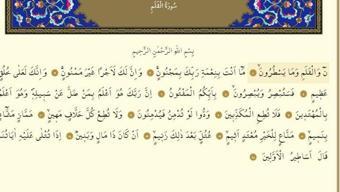 سُورَةُ الْقَلَمِ
بِسْمِ اللّٰهِ الرَّحْمٰنِ الرَّحِيمِ
نٓ وَالْقَلَمِ وَمَا يَسْطُرُونَۙ مَٓا اَنْتَ بِنِعْمَةِ رَبِّكَ بِمَجْنُونٍۚ وَاِنَّ لَكَ لَاَجْرًا غَيْرَ مَمْنُونٍۚ وَاِنَّكَ لَعَلٰى خُلُقٍ
عَظِيمٍ فَسَتُبْصِرُ وَيُبْصِرُونَۙ بِاَيِّكُمُ الْمَفْتُونُ اِنَّ رَبَّكَ هُوَ اَعْلَمُ بِمَنْ ضَلَّ عَنْ سَبِيلِهِ وَهُوَ اَعْلَمُ
بِالْمُهْتَدِينَ فَلَا تُطِعِ الْمُكَذِّبِينَ وَدُّوا لَوْ تُدْهِنُ فَيُدْهِنُونَ وَلَا تُطِعْ كُلَّ حَلَّافٍ مَهِينٍۙ هَمَّازٍ مَشَّٓاءٍ
بِنَمِيمٍۙ مَنَّاعٍ لِلْخَيْرِ مُعْتَدٍ اَثِيمٍۙ عُتُلٍّ بَعْدَ ذٰلِكَ زَنِيمٍۙ اَنْ كَانَ ذَا مَالٍ وَبَنِينَۜ اِذَا تُتْلٰى عَلَيْهِ اٰيَاتُنَا
قَالَ اَسَاطِيرُ الْاَوَّلِينَ